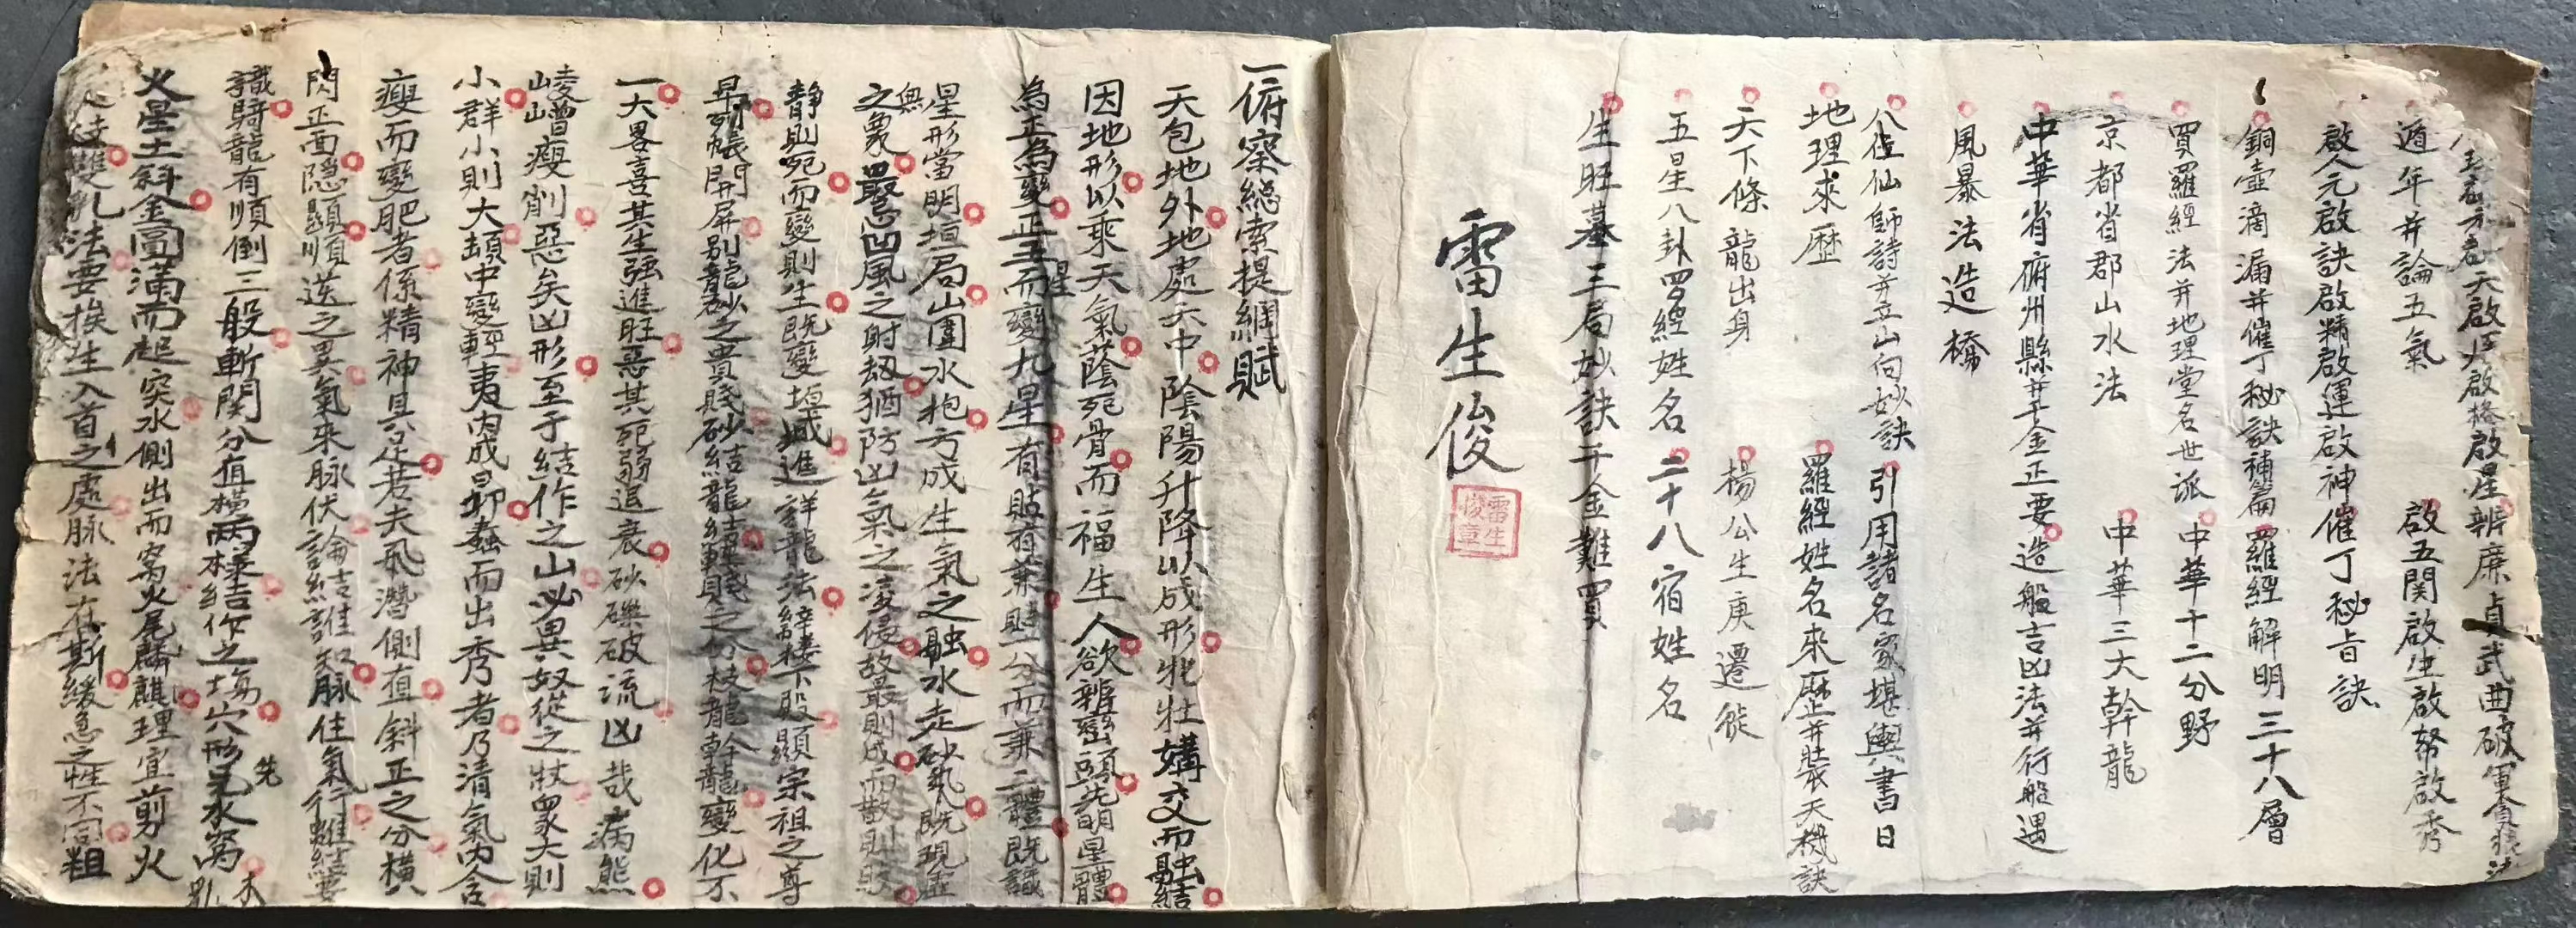 天啟火啟格啟星辨廉貞武曲破軍貪狼法
遁年并論五氣 啟五関啟生啟帑啟秀
啟人元啟訣啟精啟運啟神催丁秘旨訣
銅壺滴漏并催丁秘訣補篇羅經解明三十八層
買羅經法并地理堂名世派 中華十二分野
京都省郡山水法 中華三大幹龍
中華省府州縣并千金正要造般吉凶法并行船遇
風暴法造橋
八位仙師詩并立山向妙訣引用諸名家堪輿書曰
地理求歷 羅經姓名來歷并裝天機訣
天下條龍出身 楊公生庚遷徙
五星八卦四經姓名二十八宿姓名
生旺墓三局妙訣千金難買
雷生俊
雷生俊章
一俯察總索提綱賦
天包地外地處天中陰陽升降以成形牝牡媾交而融結
因地形以乘天氣蔭死骨而福生人欲辨巒頭先明星體
為正為變正五星而變九星有貼有兼貼一分而兼二體既識
星形當明垣局山圍水抱方成生氣之融水走砂飛既現虛
無之象最忌凹風之射劫猶防凶氣之凌侵故最則成而散則敗
静則死而變則生既變垣城進詳龍法辭樓下殿顯宗祖之尊
昂帳開屏別龍砂之貴賤砂結龍結轉賤之分枝龍幹龍變化不
一大畧喜其生強進旺惡其死弱退衰砂礫破流凶哉病態
崚嶒瘦削惡矣凶形至于結作之山必異奴從之狀衆大則
小群小則大頓中變輕夷内成昻蠢而出秀者乃清氣内含
瘦而變肥者係精神具足若夫飛潛側直斜正之分橫
閃正面隱顯順逆之異氣來脉伏論結誰知脉住氣行雖結要
識騎龍有順倒三般斬関分直橫兩樣結作之塲穴形先見水窩木乳
火星土斜金圓滿而起突水側出而窩火尾麟麒理宜剪火
雙乳法要挨生入首之處脉法在斯緩急之性不同粗